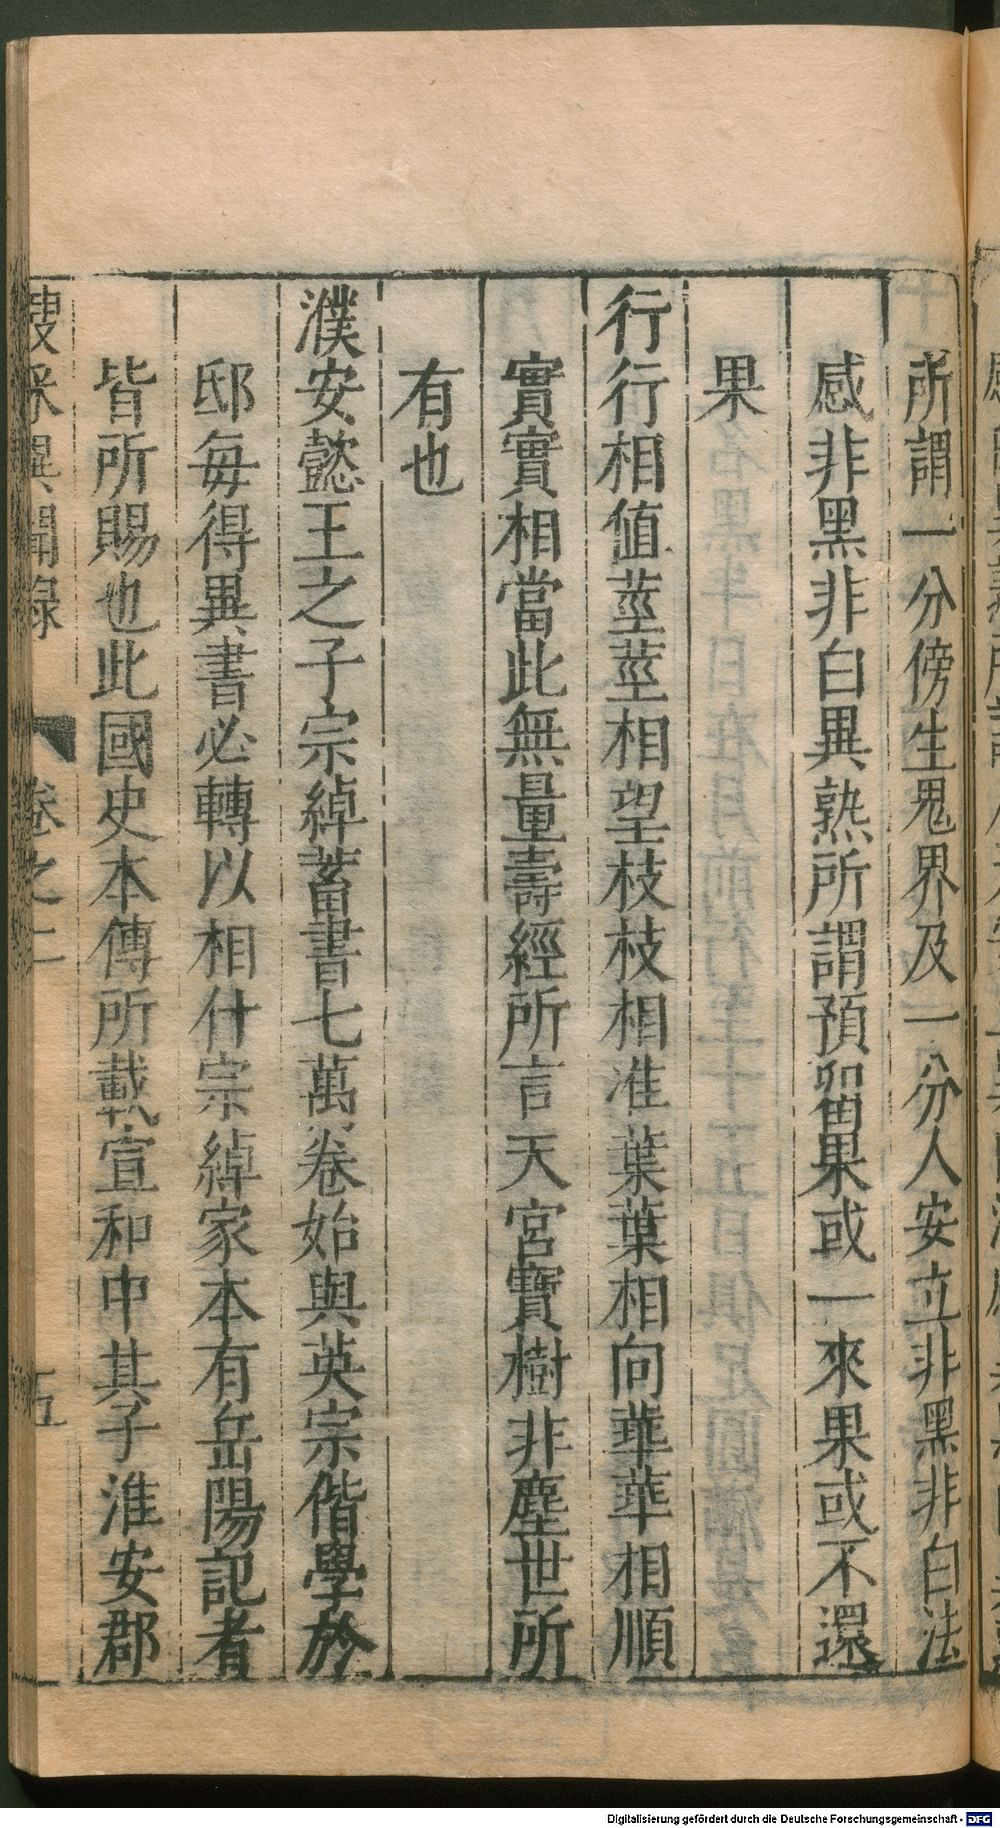 所謂一分傍生鬼界及一分人安立非黑非白法
感非黑非白異熟所謂預留果或一來果或不還
果
行行相值莖莖相望枝枝相准葉葉相向華華相順
實實相當此無量壽經所言天宮寶樹非塵世所
有也
濮安懿王之子宗綽蓄書七萬卷始與英宗偕學於
邸每得異書必轉以相什宗綽家本有岳陽記者
皆所賜也此國史本傳所載宣和中其子淮安郡
搜采異聞錄 卷之二 五
Digitalisierung gefördert durch die Deutsche Forschungsgemeinschaft - DFG